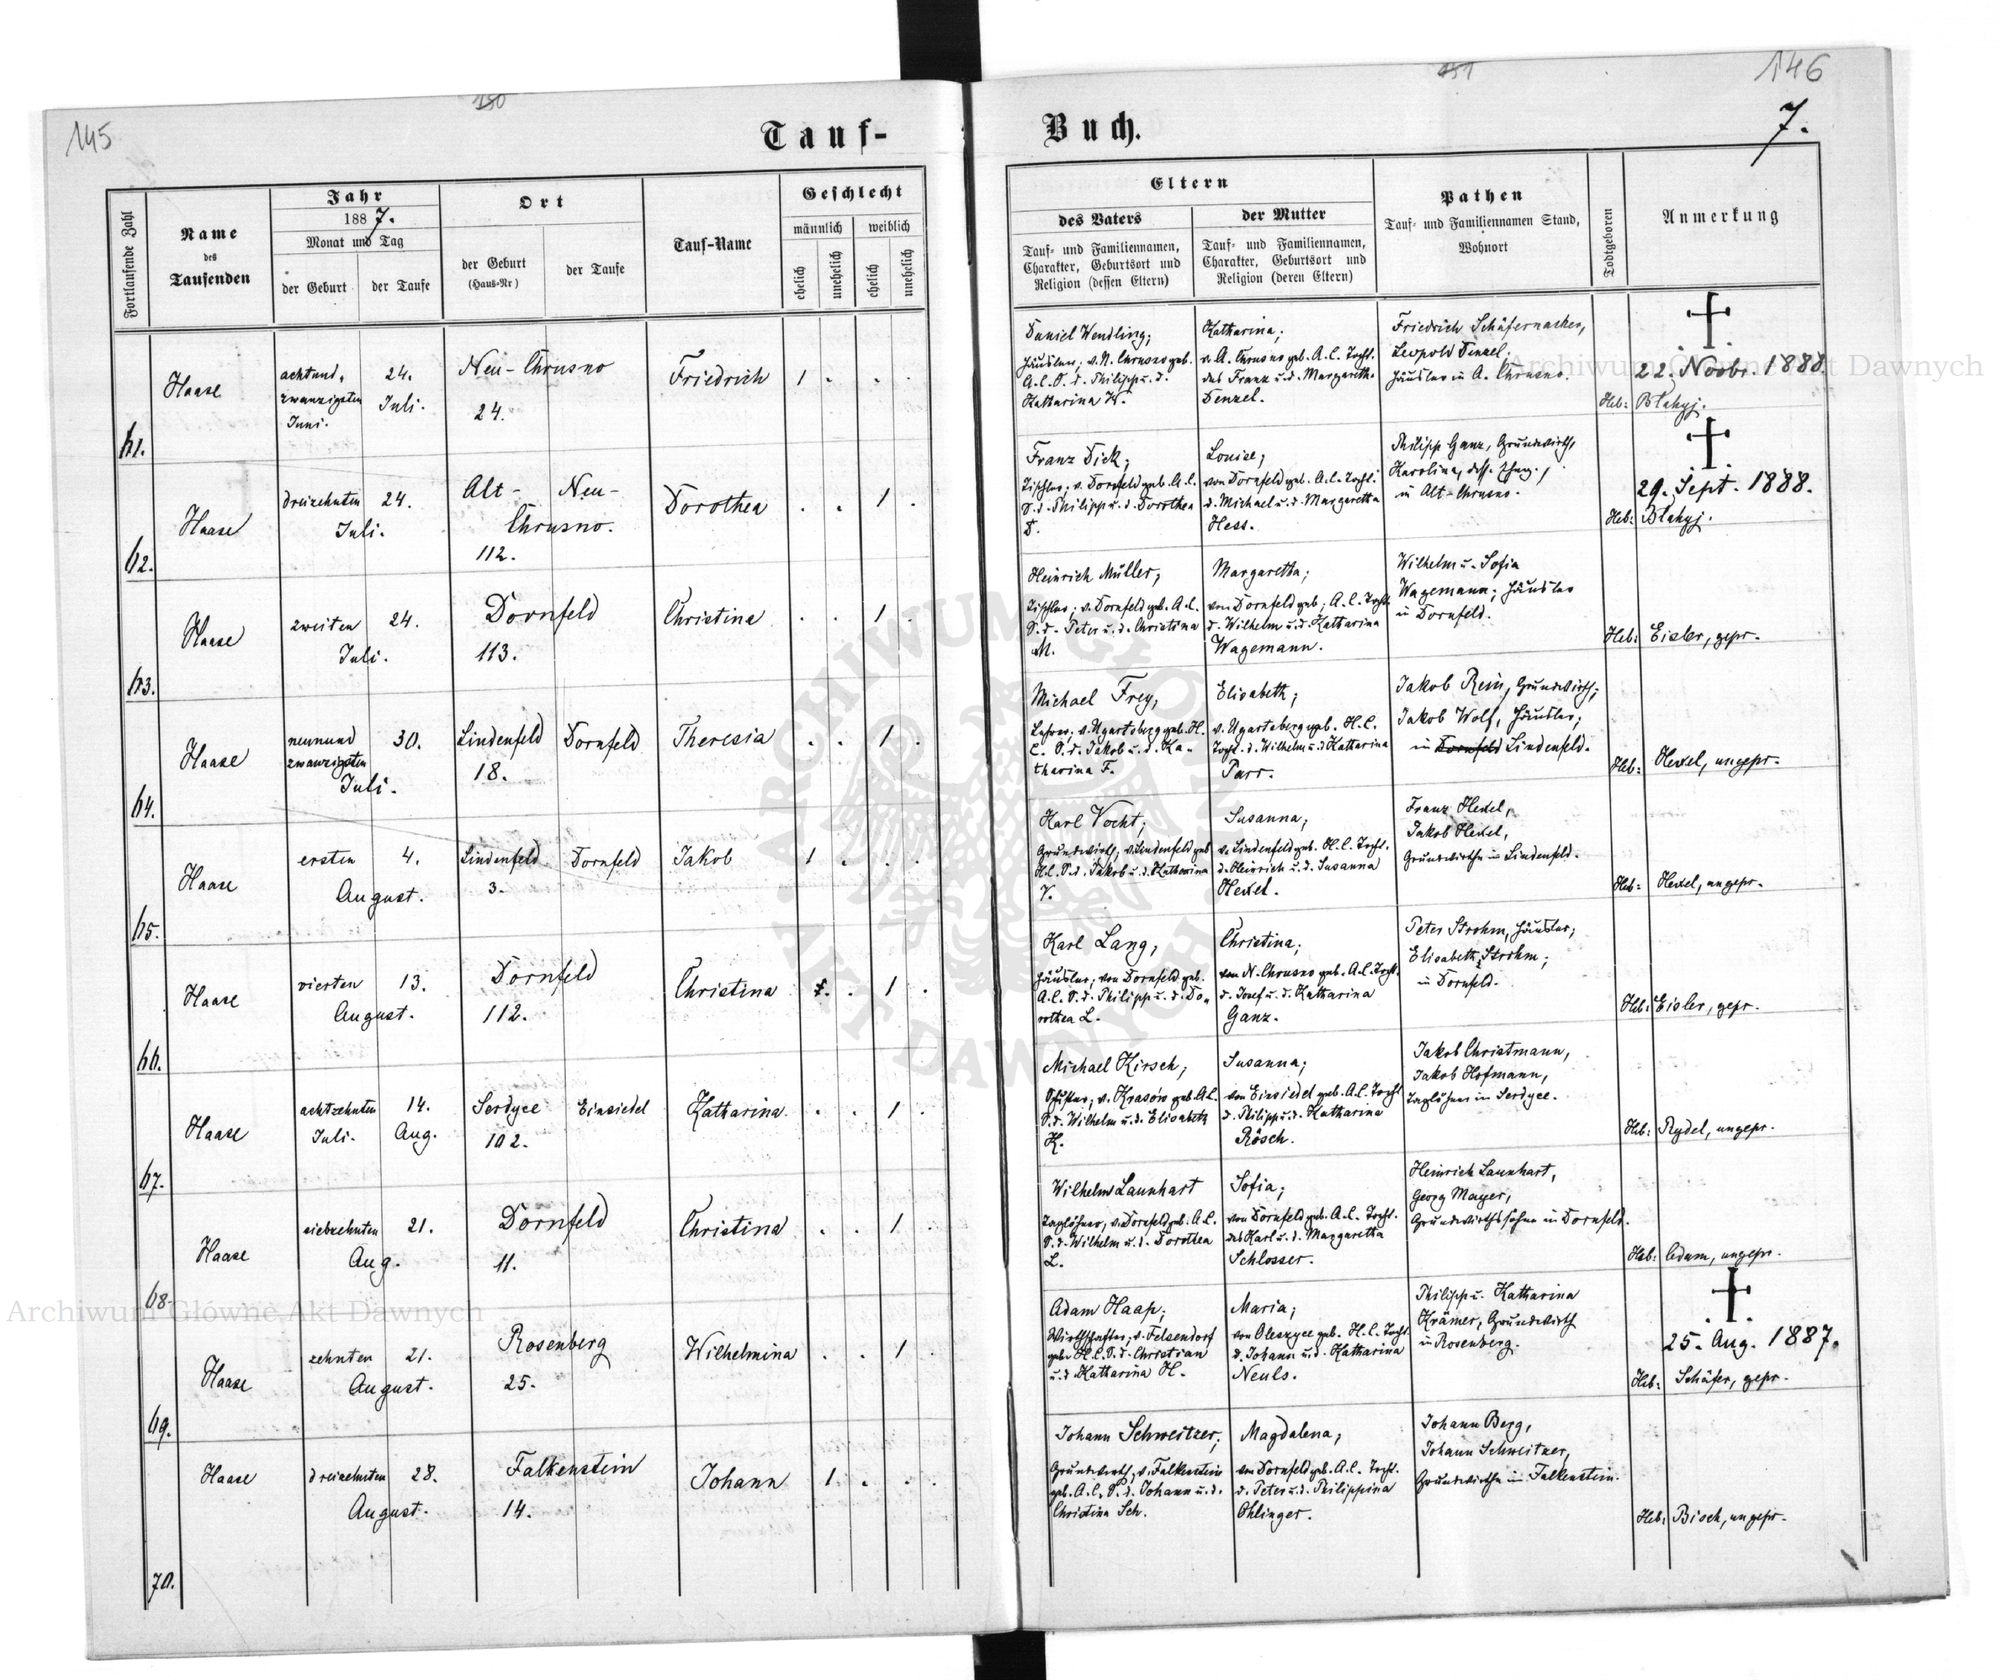 145
150
Tauf-
Fortlaufende Zahl
Name
des
Taufenden
Jahr
1887.
Monat und Tag
der Geburt
der Taufe
Ort
der Geburt
(Haus-Nr)
der Taufe
Tauf-Name
Geschlecht
männlich
weiblich
ehelich
unehelich
ehelich
unehelich
61.
Haase
achtund-
zwanzigsten
Juni.
24.
Juli.
Neu-Chrusno
24.
Friedrich
1 . . .
62.
Haase
dreizehnten
24.
Juli.
Alt- Neu-
Chrusno.
112.
Dorothea
. . 1 .
63.
Haase
zweiten
24.
Juli.
Dornfeld
113.
Christina
. . 1 .
64.
Haase
neunund
zwanzigsten
30.
Juli.
Lindenfeld
18.
Dornfeld
Theresia
. . 1 .
65.
Haase
ersten
4.
August.
Lindenfeld
3.
Dornfeld
Jakob
1 . . .
66.
Haase
vierten
13.
August.
Dornfeld
112.
Christina
. 1 .
67.
Haase
achtzehnten
Juli.
14.
Aug.
Serdyce
102.
Einsiedel
Katharina.
. . 1 .
68.
Haase
siebzehnten
21.
Aug.
Dornfeld
11.
Christina
. . 1 .
69.
Haase
zehnten
21.
August.
Rosenberg
25.
Wilhelmina
. . 1 .
70.
Haase
dreizehnten
28.
August.
Falkenstein
14.
Johann
1 . . .
151
146
Buch.
7.
Eltern
des Vaters
Tauf- und Familiennamen,
Charakter, Geburtsort und
Religion (dessen Eltern)
der Mutter
Tauf- und Familiennamen,
Charakter, Geburtsort und
Religion (deren Eltern)
Pathen
Tauf- und Familiennamen Stand,
Wohnort
Todtgeboren
Anmerkung
Daniel Wendling;
Häusler; v. N. Chrusno geb.
A.C. S. d. Philipp u. d.
Katharina W.
Katharina;
v. A. Chrusno geb. A.C. Tocht.
des Franz u. d. Margareth.
Denzel.
Friedrich Schäfernacker,
Leopold Denzel;
Häusler in A. Chrusno.
22. Novbr. 1888.
Heb: Blahyj.
Franz Dick;
Tischler; v. Dornfeld geb. A.C.
S. d. Philipp u. d. Dorothea
D.
Louise;
von Dornfeld geb. A.C. Tocht.
d. Michael u. d. Margaretha
Hess.
Philipp Ganz, Grundwirth,
Karolina,
in Alt-Chrusno.
29. Sept. 1888.
Heb: Blahyj.
Heinrich Müller;
Tischler; v. Dornfeld geb. A.C.
S. d. Peter u. d. Christina
M.
Margaretha;
von Dornfeld geb; A.C. Tocht.
d. Wilhelm u. d. Katharina
Wagemann.
Wilhelm u. Sofia
Wagemann; Häusler
in Dornfeld.
Heb: Eisler, gepr.
Michael Frey;
Lehrer; v. Ugartsberg geb. H.
C. S. d. Jakob u. d. Ka-
tharina F.
Elisabeth;
v. Ugartsberg geb. H.C.
Tocht. d. Wilhelm u. d. Katharina
Parr.
Jakob Rein, Grundwirth;
Jakob Wolf, Häusler;
in Dornfeld Lindenfeld.
Heb: Hexel, ungepr.
Karl Vocht;
Grundwirth; v. Lindenfeld geb
H.C. S. d. Jakob u. d. Katharina
V.
Susanna;
v. Lindenfeld geb. H.C. Tocht.
d. Heinrich u. d. Susanna
Hexel.
Franz Hexel,
Jakob Hexel,
Grundwirthe in Lindenfeld.
Heb: Hexel, ungepr.
Karl Lang;
Häusler; von Dornfeld geb.
A.C. S. d. Philipp u. d. Do-
rothea L.
Christina;
von N. Chrusno geb. A.C. Tocht.
d. Josef u. d. Katharina
Ganz.
Peter Strohm, Häusler;
Elisabeth Strohm;
in Dornfeld.
Heb: Eisler, gepr.
Michael Kirsch;
v. Krasów geb. A.C.
S. d. Wilhelm u. d. Elisabeth
K.
Susanna;
von Einsiedel geb. A.C. Tocht
d. Philipp u. d. Katharina
Rösch.
Jakob Christmann,
Jakob Hofmann,
Taglöhner in Serdyce.
Heb: Rydel, ungepr.
Wilhelm Launhart
Taglöhner, v. Dornfeld geb. A.C.
S. d. Wilhelm u. d. Dorothea
L.
Sofia;
von Dornfeld geb. A.C. Tocht.
des Karl u. d. Margaretha
Schlosser.
Heinrich Launhart,
Georg Mayer,
Grundwirthssöhne in Dornfeld.
Heb: Adam, ungepr.
Adam Haap;
Wirthschafter; v. Felsendorf
geb. H.C. S. d. Christian
u. d. Katharina H.
Maria;
von Oleszyce geb. H.C. Tocht.
d. Johann u. d. Katharina
Neuls.
Philipp u. Katharina
Krämer, Grundwirth
in Rosenberg.
25. Aug. 1887.
Heb: Schäfer, gepr.
Johann Schweitzer;
Grundwirth, v. Falkenstein
geb. A.C. S. d. Johann u. d.
Christina Sch.
Magdalena;
von Dornfeld geb. A.C. Tocht.
d. Peter u. d. Philippina
Ohlinger.
Johann Berg,
Johann Schweitzer,
Grundwirthe in Falkenstein.
Heb: Bisch, ungepr.
Archiwum Główne Akt Dawnych
Archiwum Główne Akt Dawnych
ARCHIWUM GŁÓWNE AKT DAWNYCH